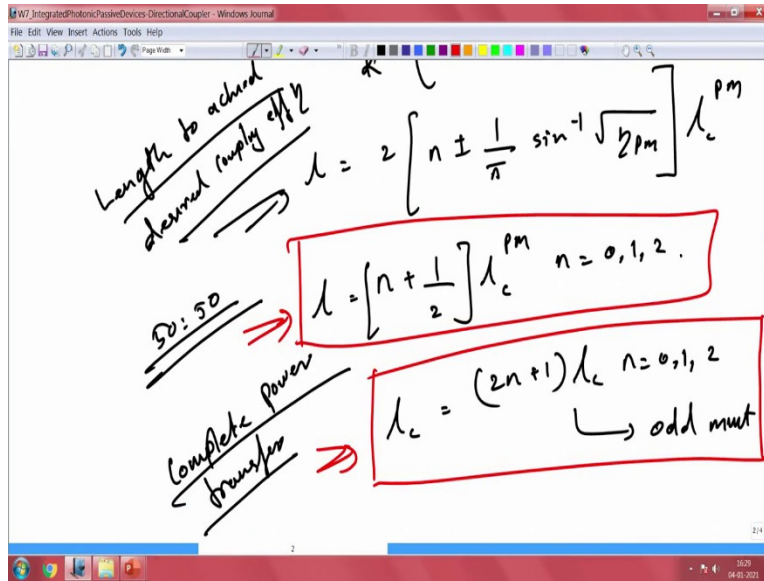 W7_IntegratedPhotonicPassiveDevices-DirectionalCoupler - Windows Journal
File Edit View Insert Actions Tools Help
Page Width
B
Length to
desired coupling eff η
l = 2 [ n ± 1/π sin⁻¹ √η_PM ] l_c^PM
50:50
l = [n + 1/2] l_c^PM n = 0, 1, 2.
Complete power
transfer
l_c = (2n+1) l_c n = 0, 1, 2
↳ odd mult
2
2/4
16:29
04-01-2021